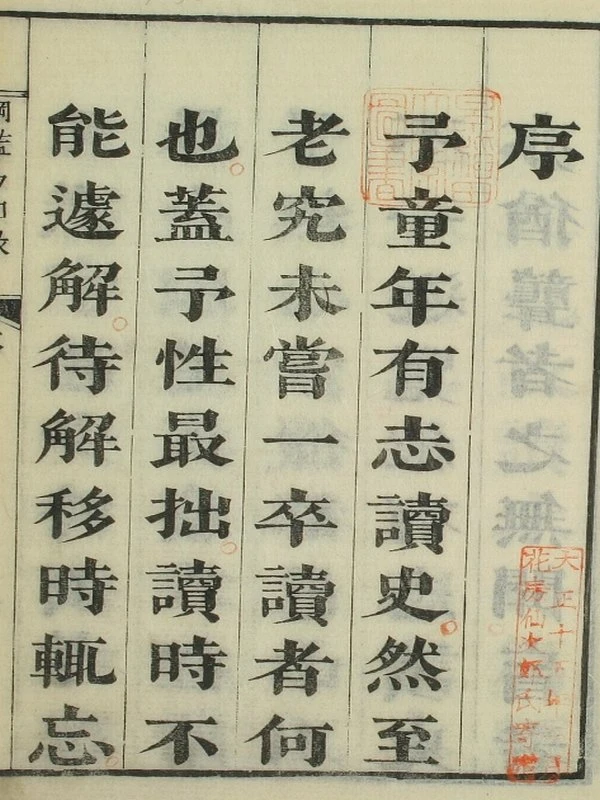 序
予童年有志讀史然至
老究未嘗一卒讀者何
也蓋予性最拙讀時不
能遽解待解移時輒忘